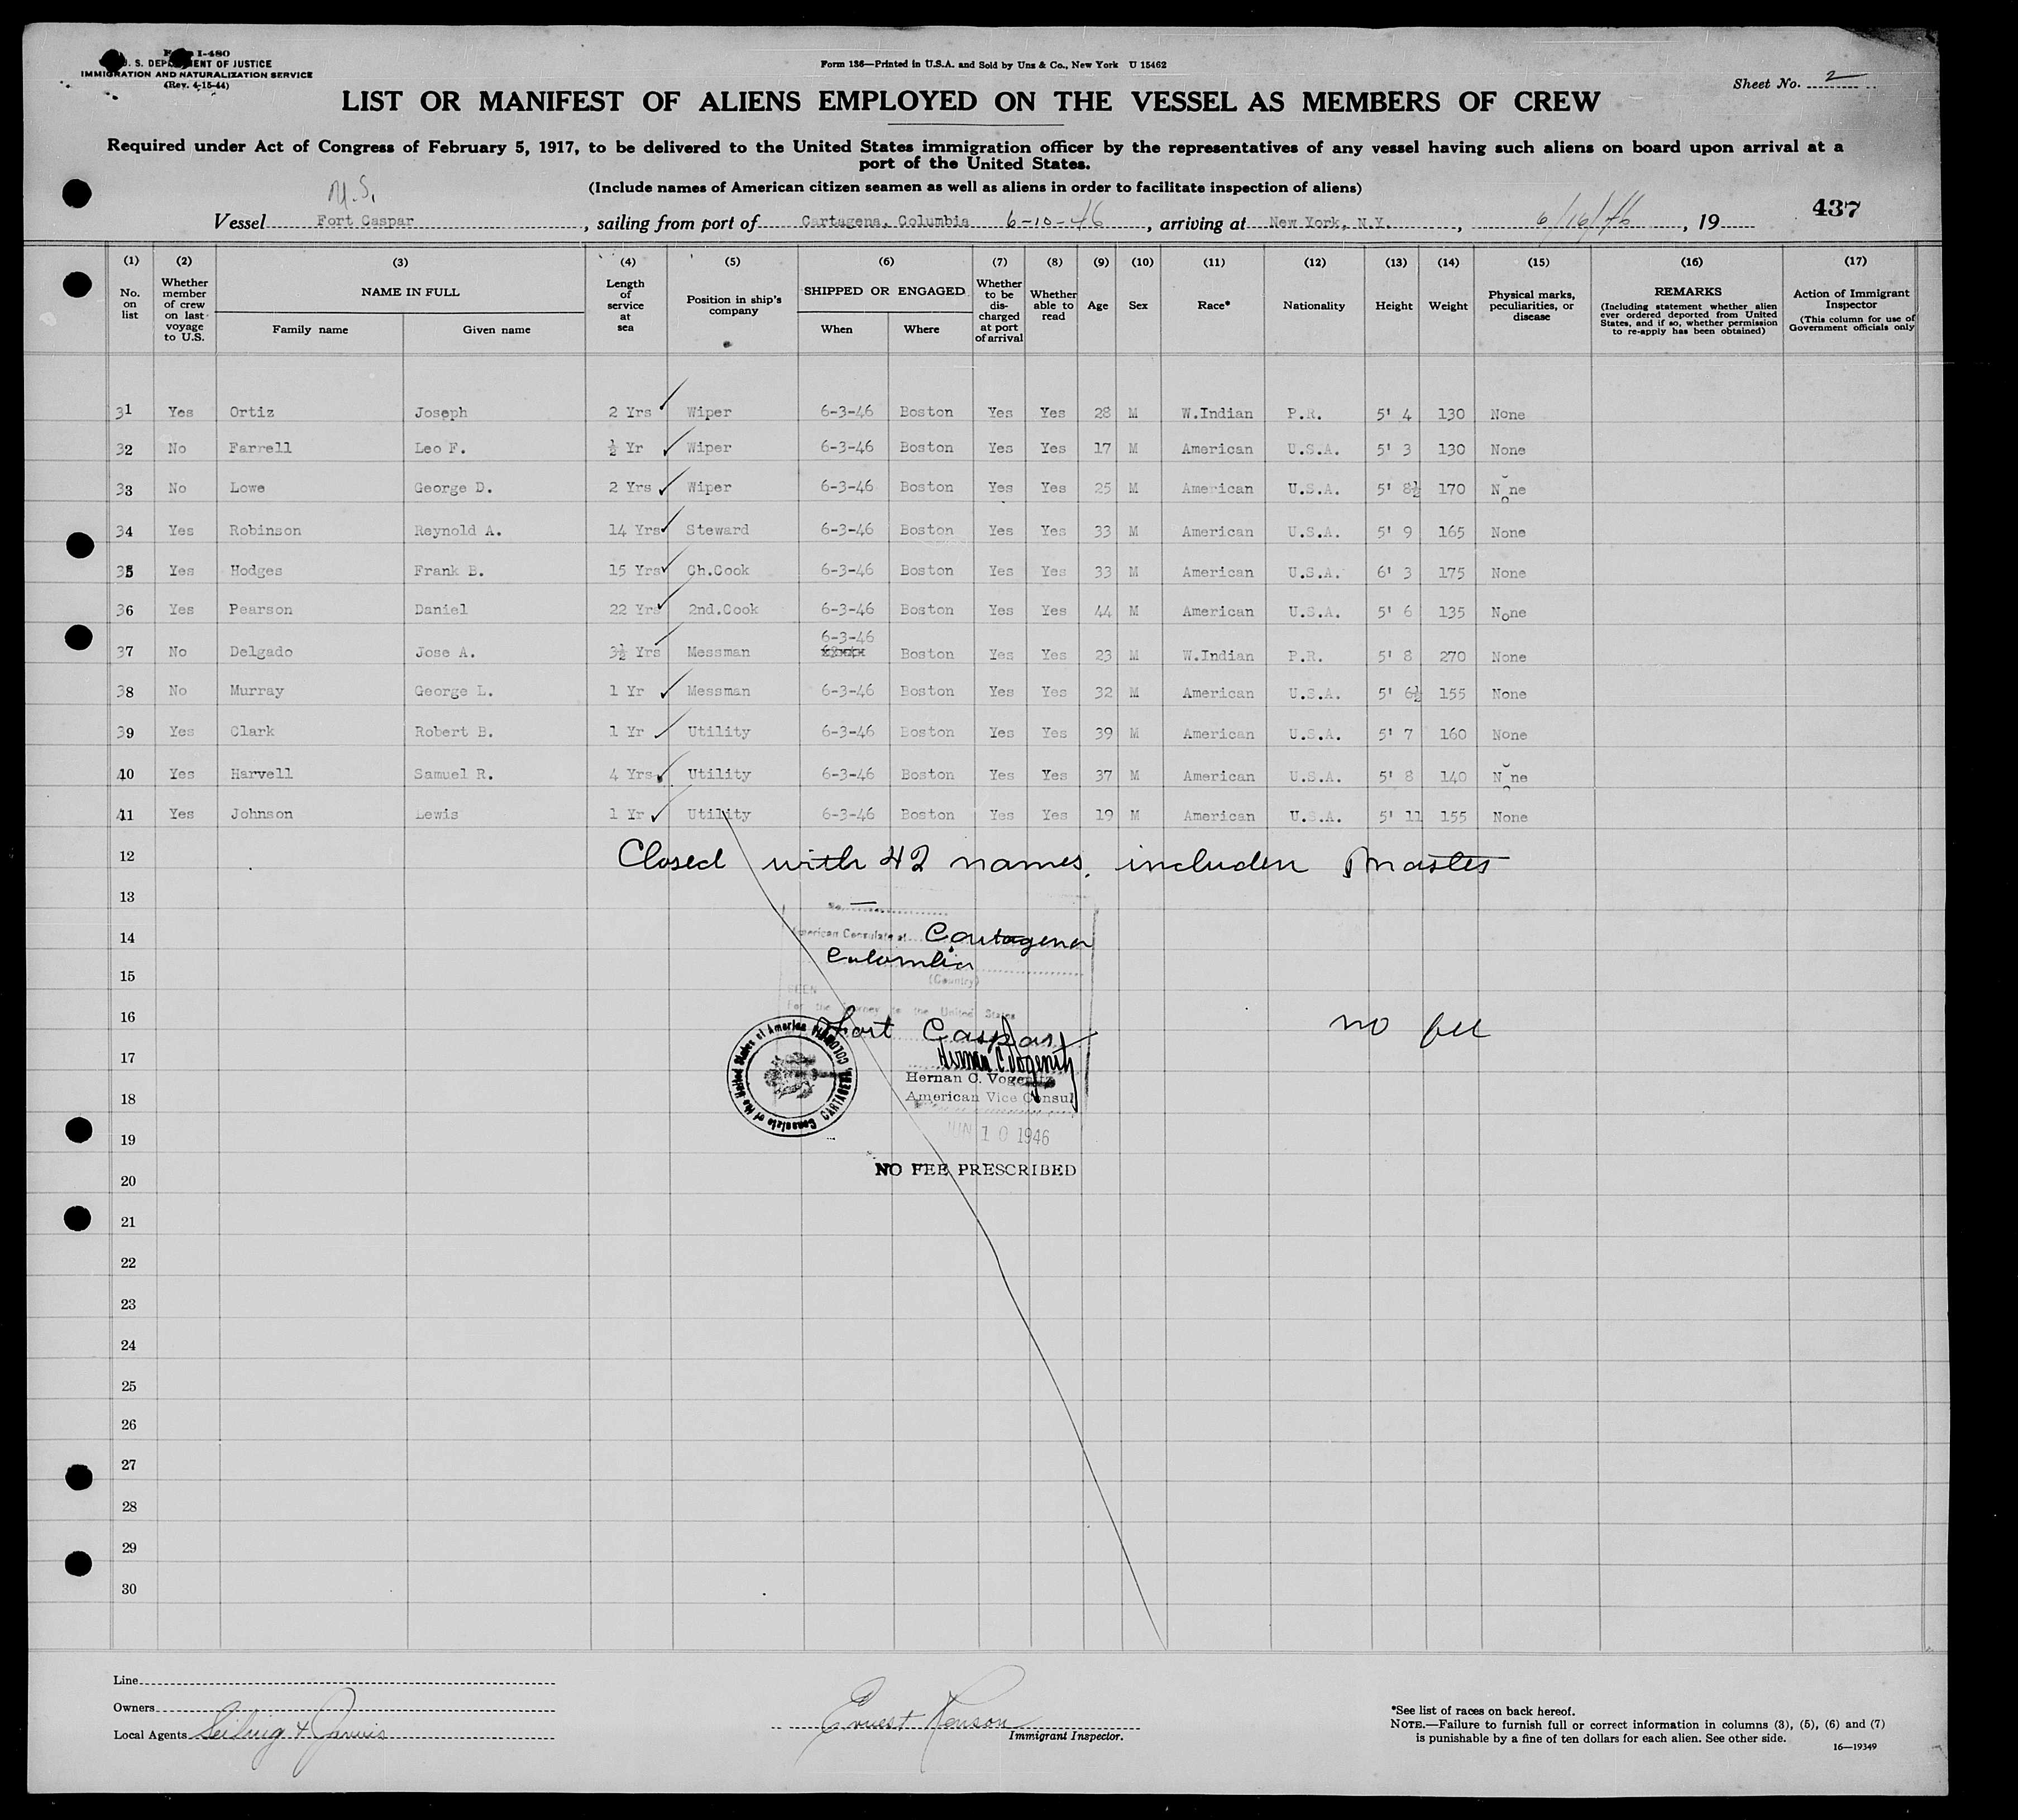 Form I-480
U. S. DEPARTMENT OF JUSTICE
IMMIGRATION AND NATURALIZATION SERVICE
(Rev. 4-15-44)
Form 136—Printed in U.S.A. and Sold by Unz & Co., New York U 15462
Sheet No. 2
LIST OR MANIFEST OF ALIENS EMPLOYED ON THE VESSEL AS MEMBERS OF CREW
Required under Act of Congress of February 5, 1917, to be delivered to the United States immigration officer by the representatives of any vessel having such aliens on board upon arrival at a
port of the United States.
(Include names of American citizen seamen as well as aliens in order to facilitate inspection of aliens)
M.S.
437
Vessel Fort Caspar, sailing from port of Cartagena, Columbia 6-10-46, arriving at New York, N.Y., 6/16/46, 19
(1) (2) (3) (4) (5) (6) (7) (8) (9) (10) (11) (12) (13) (14) (15) (16) (17)
No. on list
Whether member of crew on last voyage to U.S.
NAME IN FULL
Family name Given name
Length of service at sea
Position in ship's company
SHIPPED OR ENGAGED
When Where
Whether to be discharged at port of arrival
Whether able to read
Age
Sex
Race*
Nationality
Height
Weight
Physical marks, peculiarities, or disease
REMARKS
(Including statement whether alien ever ordered deported from United States, and if so, whether permission to re-apply has been obtained)
Action of Immigrant Inspector
(This column for use of Government officials only
31 Yes Ortiz Joseph 2 Yrs Wiper 6-3-46 Boston Yes Yes 28 M W.Indian P.R. 5' 4 130 None
32 No Farrell Leo F. ½ Yr Wiper 6-3-46 Boston Yes Yes 17 M American U.S.A. 5' 3 130 None
33 No Lowe George D. 2 Yrs Wiper 6-3-46 Boston Yes Yes 25 M American U.S.A. 5' 8½ 170 None
34 Yes Robinson Reynold A. 14 Yrs Steward 6-3-46 Boston Yes Yes 33 M American U.S.A. 5' 9 165 None
35 Yes Hodges Frank B. 15 Yrs Ch.Cook 6-3-46 Boston Yes Yes 33 M American U.S.A. 6' 3 175 None
36 Yes Pearson Daniel 22 Yrs 2nd.Cook 6-3-46 Boston Yes Yes 44 M American U.S.A. 5' 6 135 None
37 No Delgado Jose A. 3½ Yrs Messman 6-3-46 Boston Yes Yes 23 M W.Indian P.R. 5' 8 270 None
38 No Murray George L. 1 Yr Messman 6-3-46 Boston Yes Yes 32 M American U.S.A. 5' 6½ 155 None
39 Yes Clark Robert B. 1 Yr Utility 6-3-46 Boston Yes Yes 39 M American U.S.A. 5' 7 160 None
40 Yes Harvell Samuel R. 4 Yrs Utility 6-3-46 Boston Yes Yes 37 M American U.S.A. 5' 8 140 None
41 Yes Johnson Lewis 1 Yr Utility 6-3-46 Boston Yes Yes 19 M American U.S.A. 5' 11 155 None
12 Closed with 42 names, includen Master
13 No.
14 American Consulate at Cartagena
Colombia
15 (Country)
SEEN
For the journey to the United States
16 Fort Caspar no fee
17 Hernan C. Vogenitz
Hernan C. Vogenitz
18 American Vice Consul
Consulate of the United States of America CARTAGENA, COLOMBIA
19 JUN 10 1946
20 NO FEE PRESCRIBED
21
22
23
24
25
26
27
28
29
30
Line
Owners
Local Agents & Jarvis
Ernest
Immigrant Inspector.
*See list of races on back hereof.
NOTE.—Failure to furnish full or correct information in columns (3), (5), (6) and (7)
is punishable by a fine of ten dollars for each alien. See other side.
16—19349